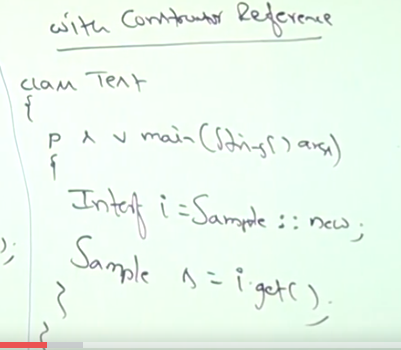 with Constructor Reference
class Test
{
p s v main(String[] args)
{
Interf i = Sample :: new;
);
Sample s = i.get();
}
}